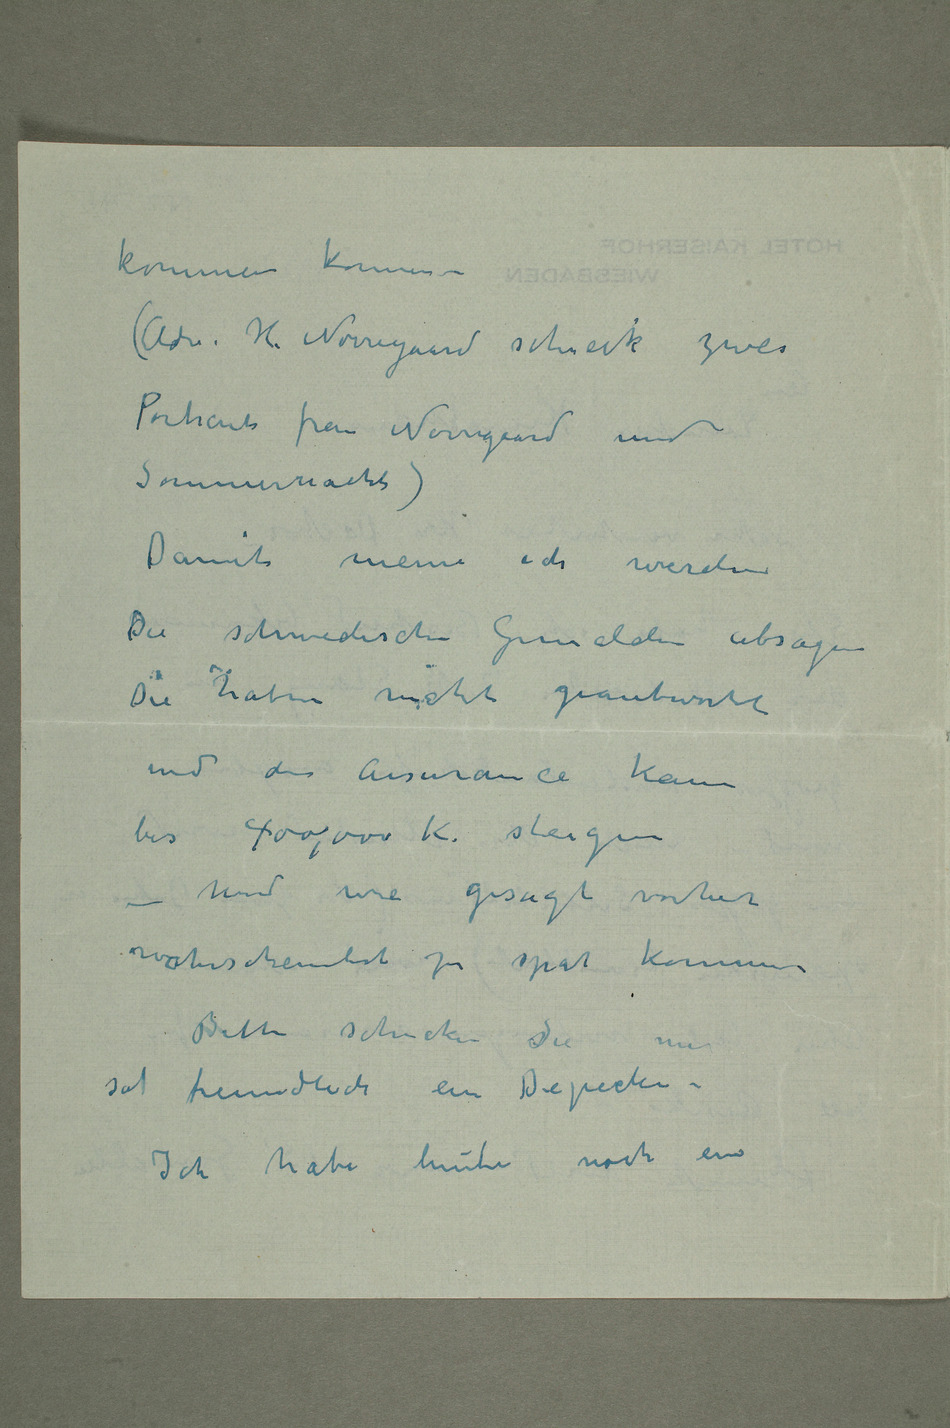 kommen können
(Adv. H. Nörregaard schickt zwei
Portraits frau Nörregaard und
Sommernacht)
Damit meine ich werden
Die schwedischen Gemälden absagen
Die haben nicht geantwortet
und die Assurance kann
bis 400,000 K. steigen
– und wie gesagt vorher
wahrscheinlich zu spät kommen
Bitte schicken Sie mir
so freundlich ein Depeche –
Ich habe heute noch ein
HOTEL KAISERHOF
WIESBADEN